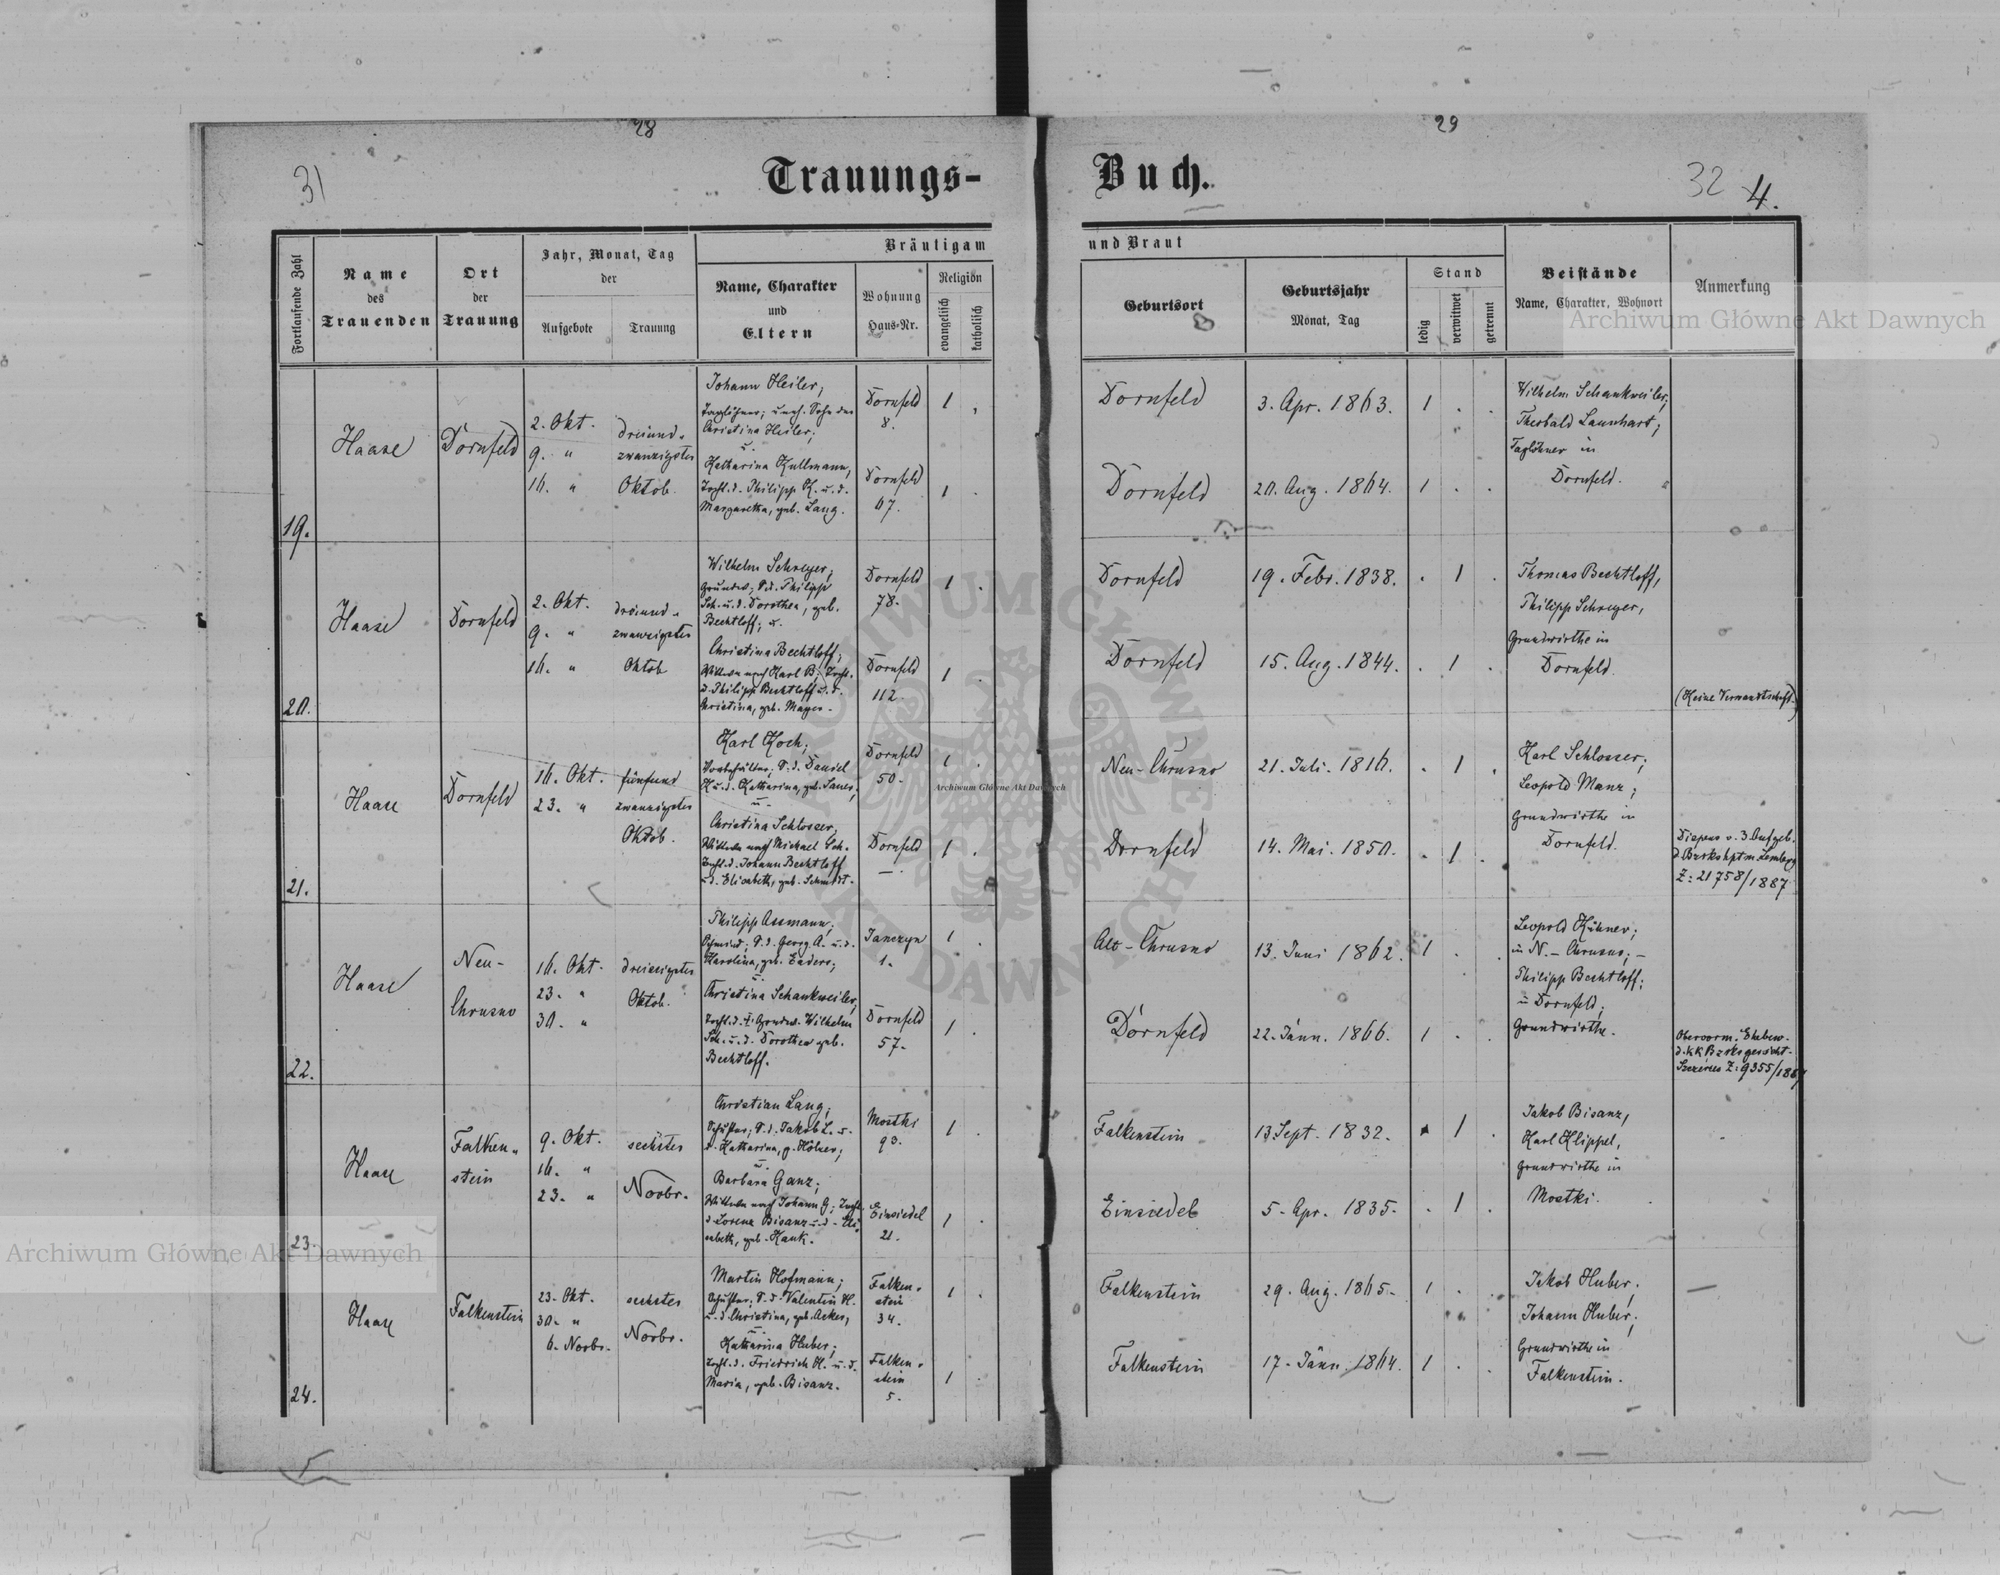 28
29
31
Trauungs-
Buch.
32
4.
Fortlaufende Zahl
Name
des
Trauenden
Ort
der
Trauung
Jahr, Monat, Tag
der
Aufgebote
Trauung
Bräutigam
Name, Charakter
und
Eltern
Wohnung
Haus-Nr.
Religion
evangelisch
katholisch
und Braut
Geburtsort
Geburtsjahr
Monat, Tag
Stand
ledig
verwitwet
getrennt
Beistände
Name, Charakter, Wohnort
Anmerkung
Archiwum Główne Akt Dawnych
19.
Haase
Dornfeld
2. Okt.
9. "
16. "
dreiund-
zwanzigster
Oktob.
Johann Heiler,
Taglöhner; uneh. Sohn der
Christina Heiler;
u.
Katharina Kullmann,
Tocht. d. Philipp K. u. d.
Margaretha, geb. Lang.
Dornfeld
8.
Dornfeld
67.
1 .
1 .
Dornfeld
3. Apr. 1863.
1 . .
Dornfeld
20. Aug. 1864.
1 . .
Wilhelm Schankweiler,
Theobald Launhart;
Taglöhner in
Dornfeld.
20.
Haase
Dornfeld
2. Okt.
9. "
16. "
dreiund-
zwanzigster
Oktob.
Wilhelm Schreyer;
Grundw; S. d. Philipp
Sch. u. d. Dorothea, geb.
Bechtloff; u.
Christina Bechtloff;
Wittwe nach Karl B; Tocht.
d. Philipp Bechtloff u. d.
Christina, geb. Mayer.
Dornfeld
78.
Dornfeld
112.
1 .
1 .
Dornfeld
19. Febr. 1838.
. 1 .
Dornfeld
15. Aug. 1844.
. 1 .
Thomas Bechtloff,
Philipp Schreyer,
Grundwirthe in
Dornfeld.
(Keine Verwandtschaft.)
21.
Haase
Dornfeld
16. Okt.
23. "
fünfund
zwanzigster
Oktob.
Karl Koch;
S. d. Daniel
K. u. d. Katharina, geb. Sauer,
u.
Christina Schlosser,
Wittwe nach Michael Sch.
Tocht. d. Johann Bechtloff
u. d. Elisabeth, geb. Schmidt.
Dornfeld
50.
Dornfeld
—.
1 .
1 .
Neu-Chrusno
21. Juli. 1816.
. 1 .
Dornfeld
14. Mai. 1850.
. 1 .
Karl Schlosser;
Leopold Manz;
Grundwirthe in
Dornfeld.
Dispens v. 3. Aufgeb.
d. Bzrkshptm. Lemberg
Z: 21758/1887
22.
Haase
Neu-
Chrusno
16. Okt.
23. "
30. "
dreissigster
Oktob.
Philipp Assmann,
Schmied; S. d. Georg A. u. d.
Karolina, geb. Enders;
u.
Christina Schankweiler,
Tocht. d. † Grundw. Wilhelm
Sch. u. d. Dorothea geb.
Bechtloff.
Janczyn
1.
Dornfeld
57.
1 .
1 .
Alt-Chrusno
13. Juni 1862.
1 . .
Dornfeld
22. Jänn. 1866.
1 . .
Leopold Kühner;
in N.-Chrusno; —
Philipp Bechtloff;
in Dornfeld;
Grundwirthe.
Obervorm. Ehebew.
d. k k Bzrksgericht
Szczerec Z: 9355/1887
23.
Haase
Falken-
stein
9. Okt.
16. "
23. "
sechster
Novbr.
Christian Lang;
Schuster; S. d. Jakob L. u.
d. Katharina, g. Hölzer;
u.
Barbara Ganz;
Wittwe nach Johann G; Tocht.
d. Lorenz Bisanz u. d. Eli-
sabeth, geb. Hauk.
Mostki
93.
Einsiedel
21.
1 .
1 .
Falkenstein
13. Sept. 1832.
. 1 .
Einsiedel
5. Apr. 1835.
. 1 .
Jakob Bisanz,
Karl Klippel,
Grundwirthe in
Mostki.
24.
Haase
Falkenstein
23. Okt.
30. "
6. Novbr.
sechster
Novbr.
Martin Hofmann;
Schuster; S. d. Valentin H.
u. d. Christina, geb. Acker;
u.
Katharina Huber;
Tocht. d. Friedrich H. u. d.
Maria, geb. Bisanz.
Falken-
stein
34.
Falken-
stein
5.
1 .
1 .
Falkenstein
29. Aug. 1865.
1 . .
Falkenstein
17. Jänn. 1864.
1 . .
Jakob Huber,
Johann Huber,
Grundwirthe in
Falkenstein.
ARCHIWUM GŁÓWNE AKT DAWNYCH
Archiwum Główne Akt Dawnych
Archiwum Główne Akt Dawnych